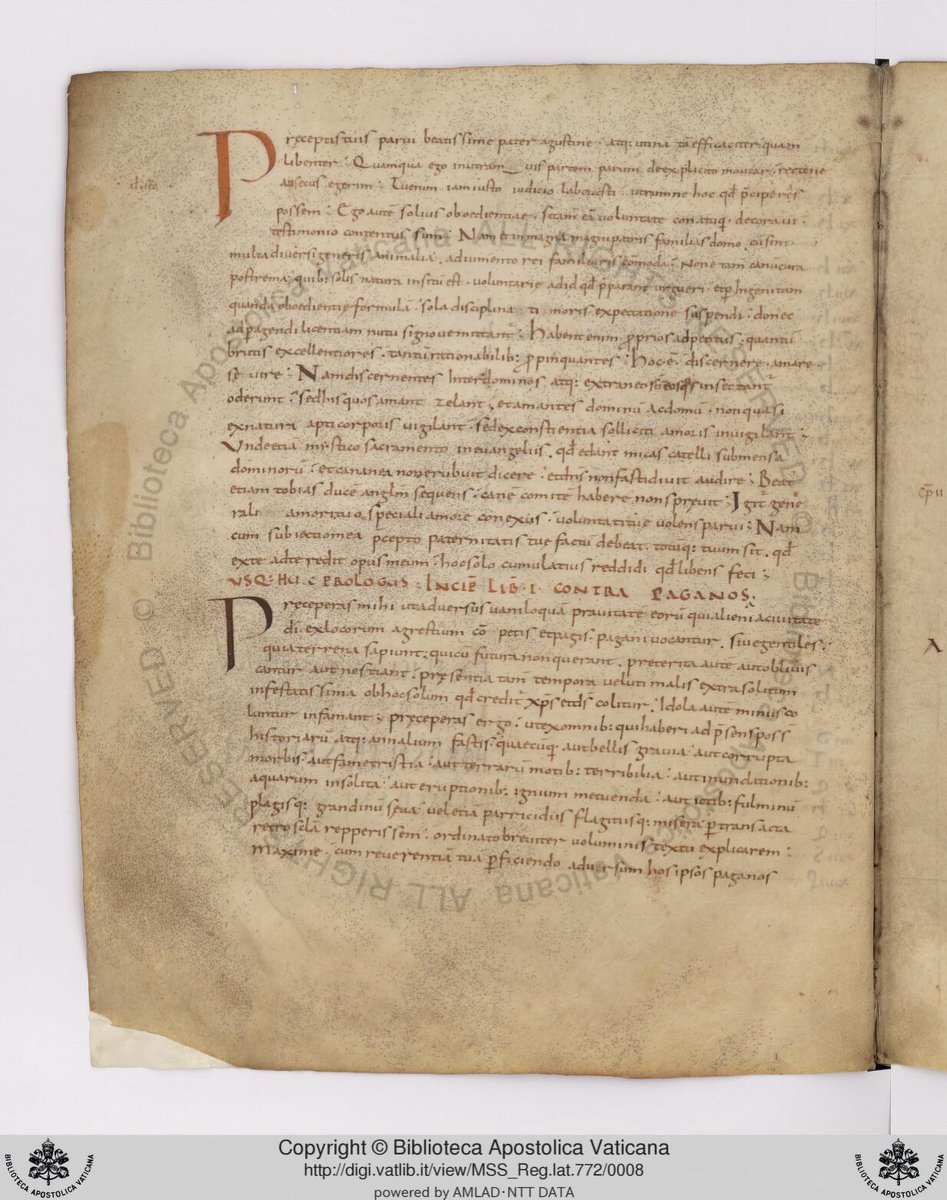 Pręceptis tuis parui beatissime pater agustine · atq; utinā tā efficaciter quam
libenter : Quamquā ego in utram vis partem parum de explicito mouear · rectene
ansecus egerim : Tu enim iam isto iudicio laborasti · utrumne hoc qđ p̄ciperes
possem : Ego autē solius oboedientiae ·
testimonio contentus sum : Nam et in magna magni patris familias domo · cū sint
multa diuersi generis animalia · adiumento rei familiaris cōmoda : Non ē tam canū cura
postrema · quibus solis natura insitū est · uoluntarie ad id qđ p̄parant urgueri · et per ingenitam
quandā oboedientie formulā · sola disciplinati moris expectatione suspendi · donec
ad peragendi licentiam nutu signoue mittant : Habent enim proprios adpetitus · quantū
brutis excellentiores · tantū rationabilib; propinquantes : Hoc ē · discernere · amare
seruire : Nam discernentes inter dominos atq; extraneos · non eos quos insectant
oderunt · sed his quos amant zelant · et amantes dominū ac domū · non quasi
ex natura apti corporis uigilant · sed ex conscientia solliciti amoris inuigilant ;
Vnde etiā mystico sacramento in euangeliis · qđ edant micas catelli sub mensa
dominorū : et cananea non erubuit dicere · et dns non fastidiuit audire : Beat
etiam tobias ducē anglm sequens · cane comite habere non spreuit : Igit gene
rali amori tuo speciali amore conexus · uoluntati tue uolens parui : Nam
cum subiectio mea pcepto paternitatis tue factū debeat · totūq; tuum sit · qđ
ex te ad te redit opus meum · hoc solo cumulatius reddidi qđ libens feci ;
VSQ: HUC PROLOGUS : INCIP LIB · I · CONTRA PAGANOS
Pręceperis mihi ut aduersus uaniloquā prauitate eorū qui alieni a ciuitate
dī · ex locorum agrestium cōpetis et pagis · pagani uocantur · siue gentiles ·
quia terrena sapiunt · qui cū futura non querant · preterita autē aut obliuis
cantur aut nesciant · presentia tam tempora ueluti malis extra solitum
infestatissima ob hoc solum qđ creditur xps et ds colitur · Idola autē minus co
luntur infamant ; Pręceperas ergo · ut ex omnib; qui haberi ad p̄sens poss
historiarū atq; annalium fastis quaecūq; aut bellis grauia · aut corrupta
morbis · aut fame tristia · aut terrarū motib; terribilia · aut inundationib;
aquarum insolita · aut eruptionib; ignium metuenda · aut ictib; fulminū
plagisq; grandinū seua uel etiā parricidiis flagitiisq; misera p̄ transacta
retro sc̄la repperissem · ordinato breuiter uoluminis textu explicarem :
Maxime · cum reuerentiā tuā perficiendo aduersum hos ipsos paganos
© Biblioteca Apostolica Vaticana ALL RIGHTS RESERVED
Copyright © Biblioteca Apostolica Vaticana
http://digi.vatlib.it/view/MSS_Reg.lat.772/0008
powered by AMLAD·NTT DATA
BIBLIOTECA APOSTOLICA VATICANA
BIBLIOTECA APOSTOLICA VATICANA